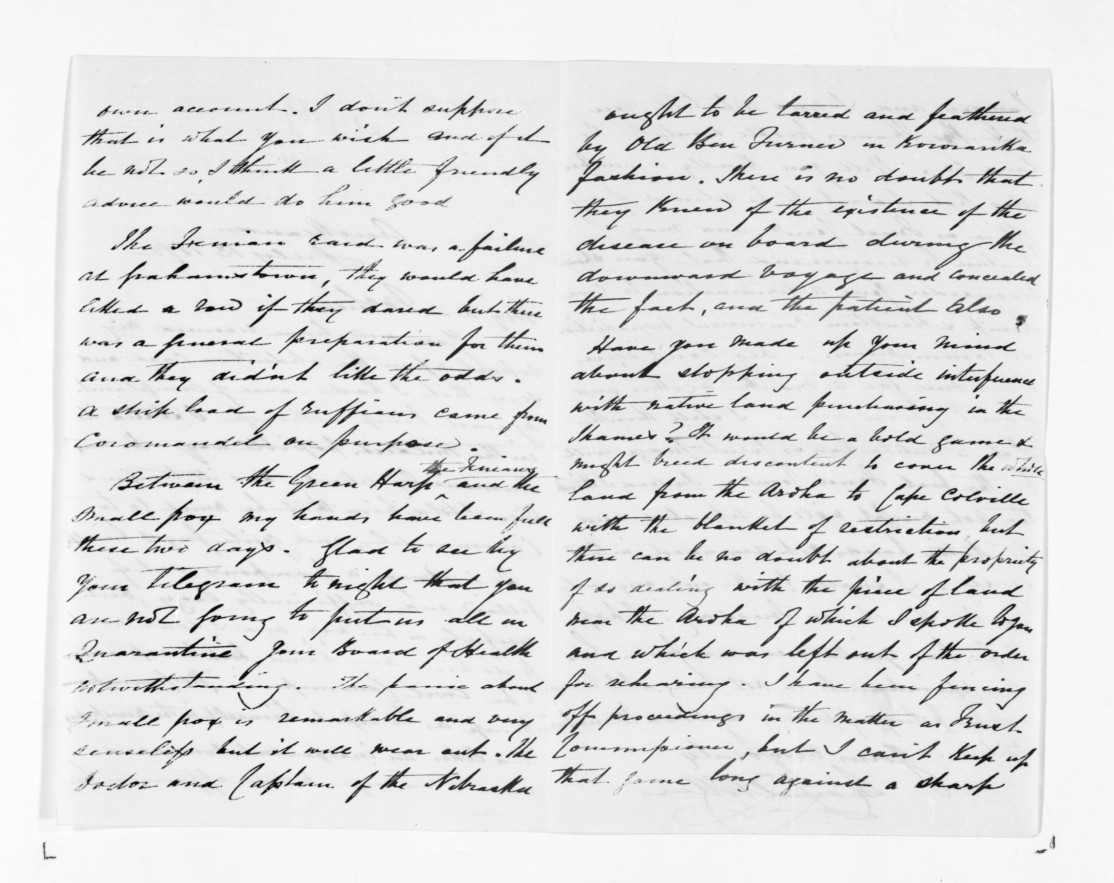 own account. I don't suppose
that is what you wish and if it
be not so, I think a little friendly
advice would do him good
The Fenian raid was a failure
at Grahamstown, they would have
kicked a row if they dared but there
was a general preparation for them
and they didn't like the odds.
A ship load of ruffians came from
Coromandel on purpose.
Between the Green Harp the Fenians and the
small pox my hands have been full
these two days. Glad to see by
your telegram tonight that you
are not going to put us all in
Quarantine your Board of Health
notwithstanding. The panic about
small pox is remarkable and very
senseless but it will wear out. The
Doctor and Captain of the Nebraska
ought to be tarred and feathered
by Old Ben Turner in
fashion. There is no doubt that
they knew of the existence of the
disease on board during the
downward voyage and concealed
the fact, and the patient also.
Have you made up your mind
about stopping outside interference
with native land purchasing in the
Thames? It would be a bold game &
might breed discontent to cover the whole
land from the Aroha to Cape Colville
with the blanket of restriction, but
there can be no doubt about the propriety
of so dealing with the piece of land
near the Aroha of which I spoke
and which was left out of the order
for rehearing. I have been fencing
off proceedings in the matter as Trust
Commissioner, but I can't keep up
that game long against a sharp